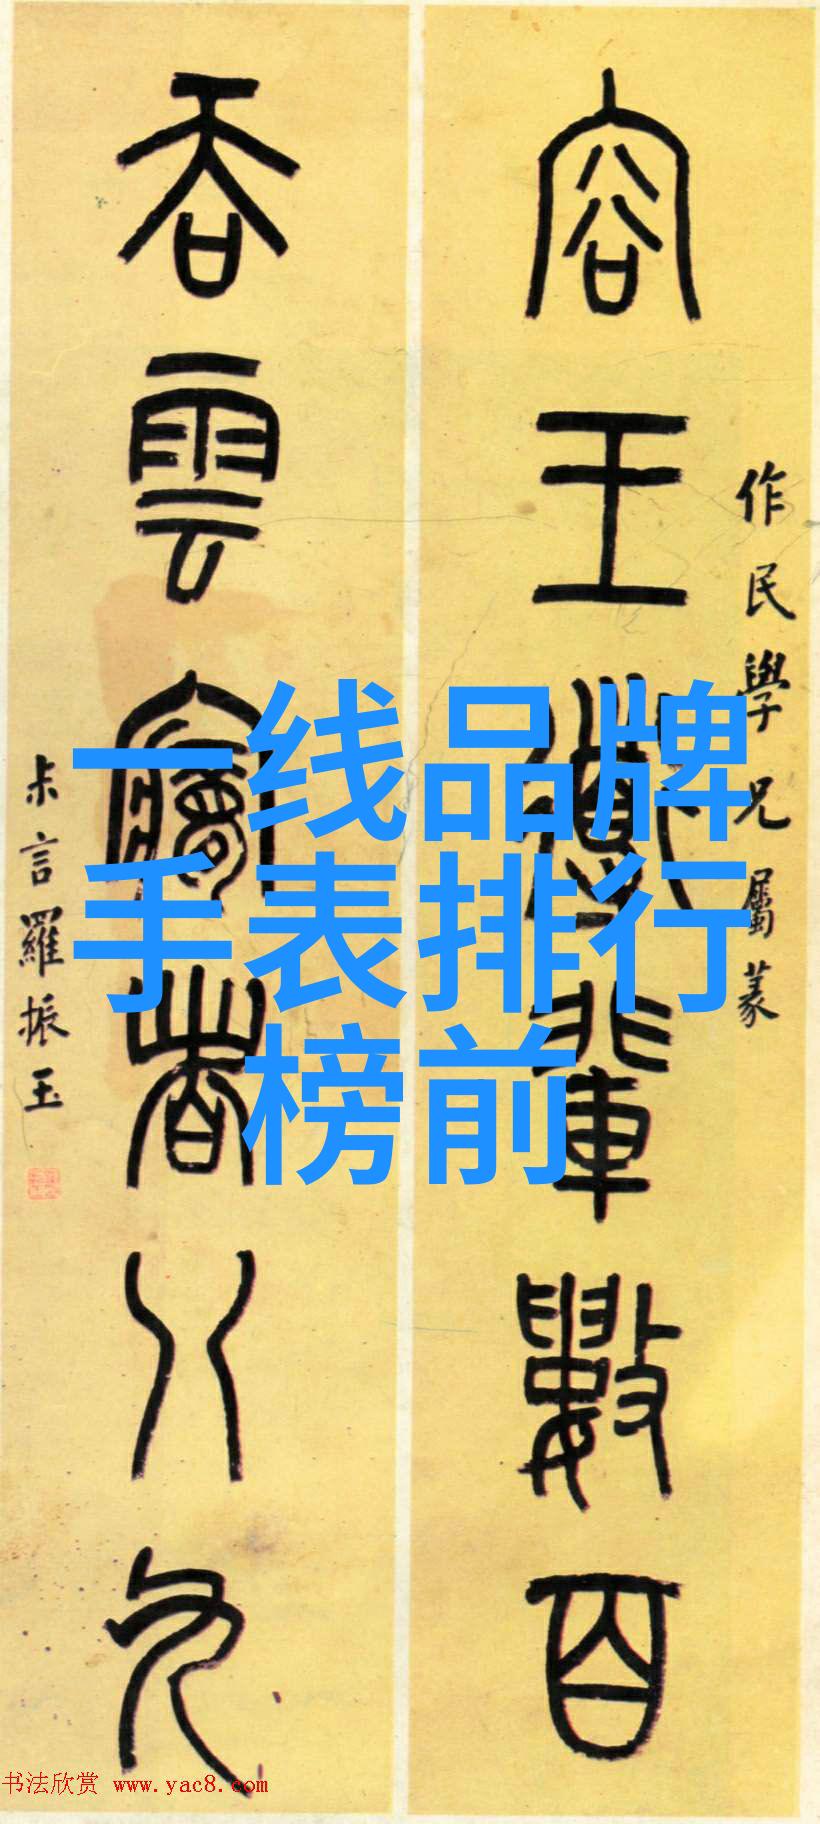 一线品牌
手表排行
榜前
作民學兄屬篆
容王導輩數百
吞雲夢者八九
尗言羅振玉
书法欣赏 www.yac8.com